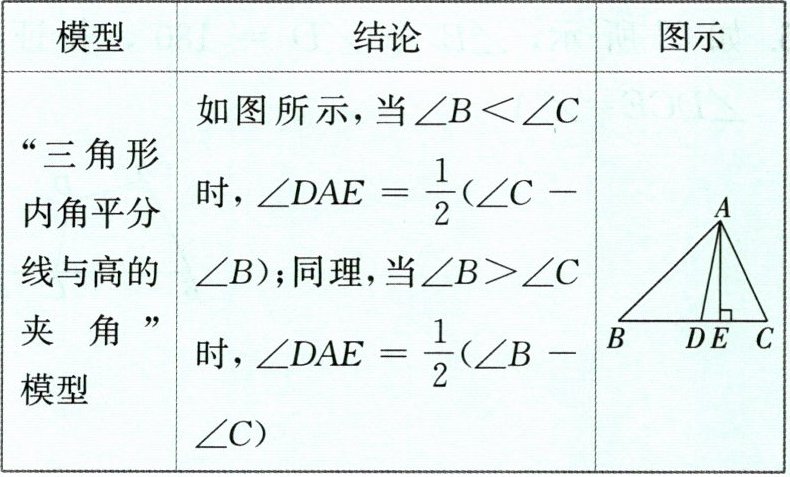 模型 结论 图示
“三角形
内角平分
线与高的
夹角”
模型
如图所示,当∠B<∠C
时,∠DAE=1/2(∠C-
∠B);同理,当∠B>∠C
时,∠DAE=1/2(∠B-
∠C)
A
B D E C